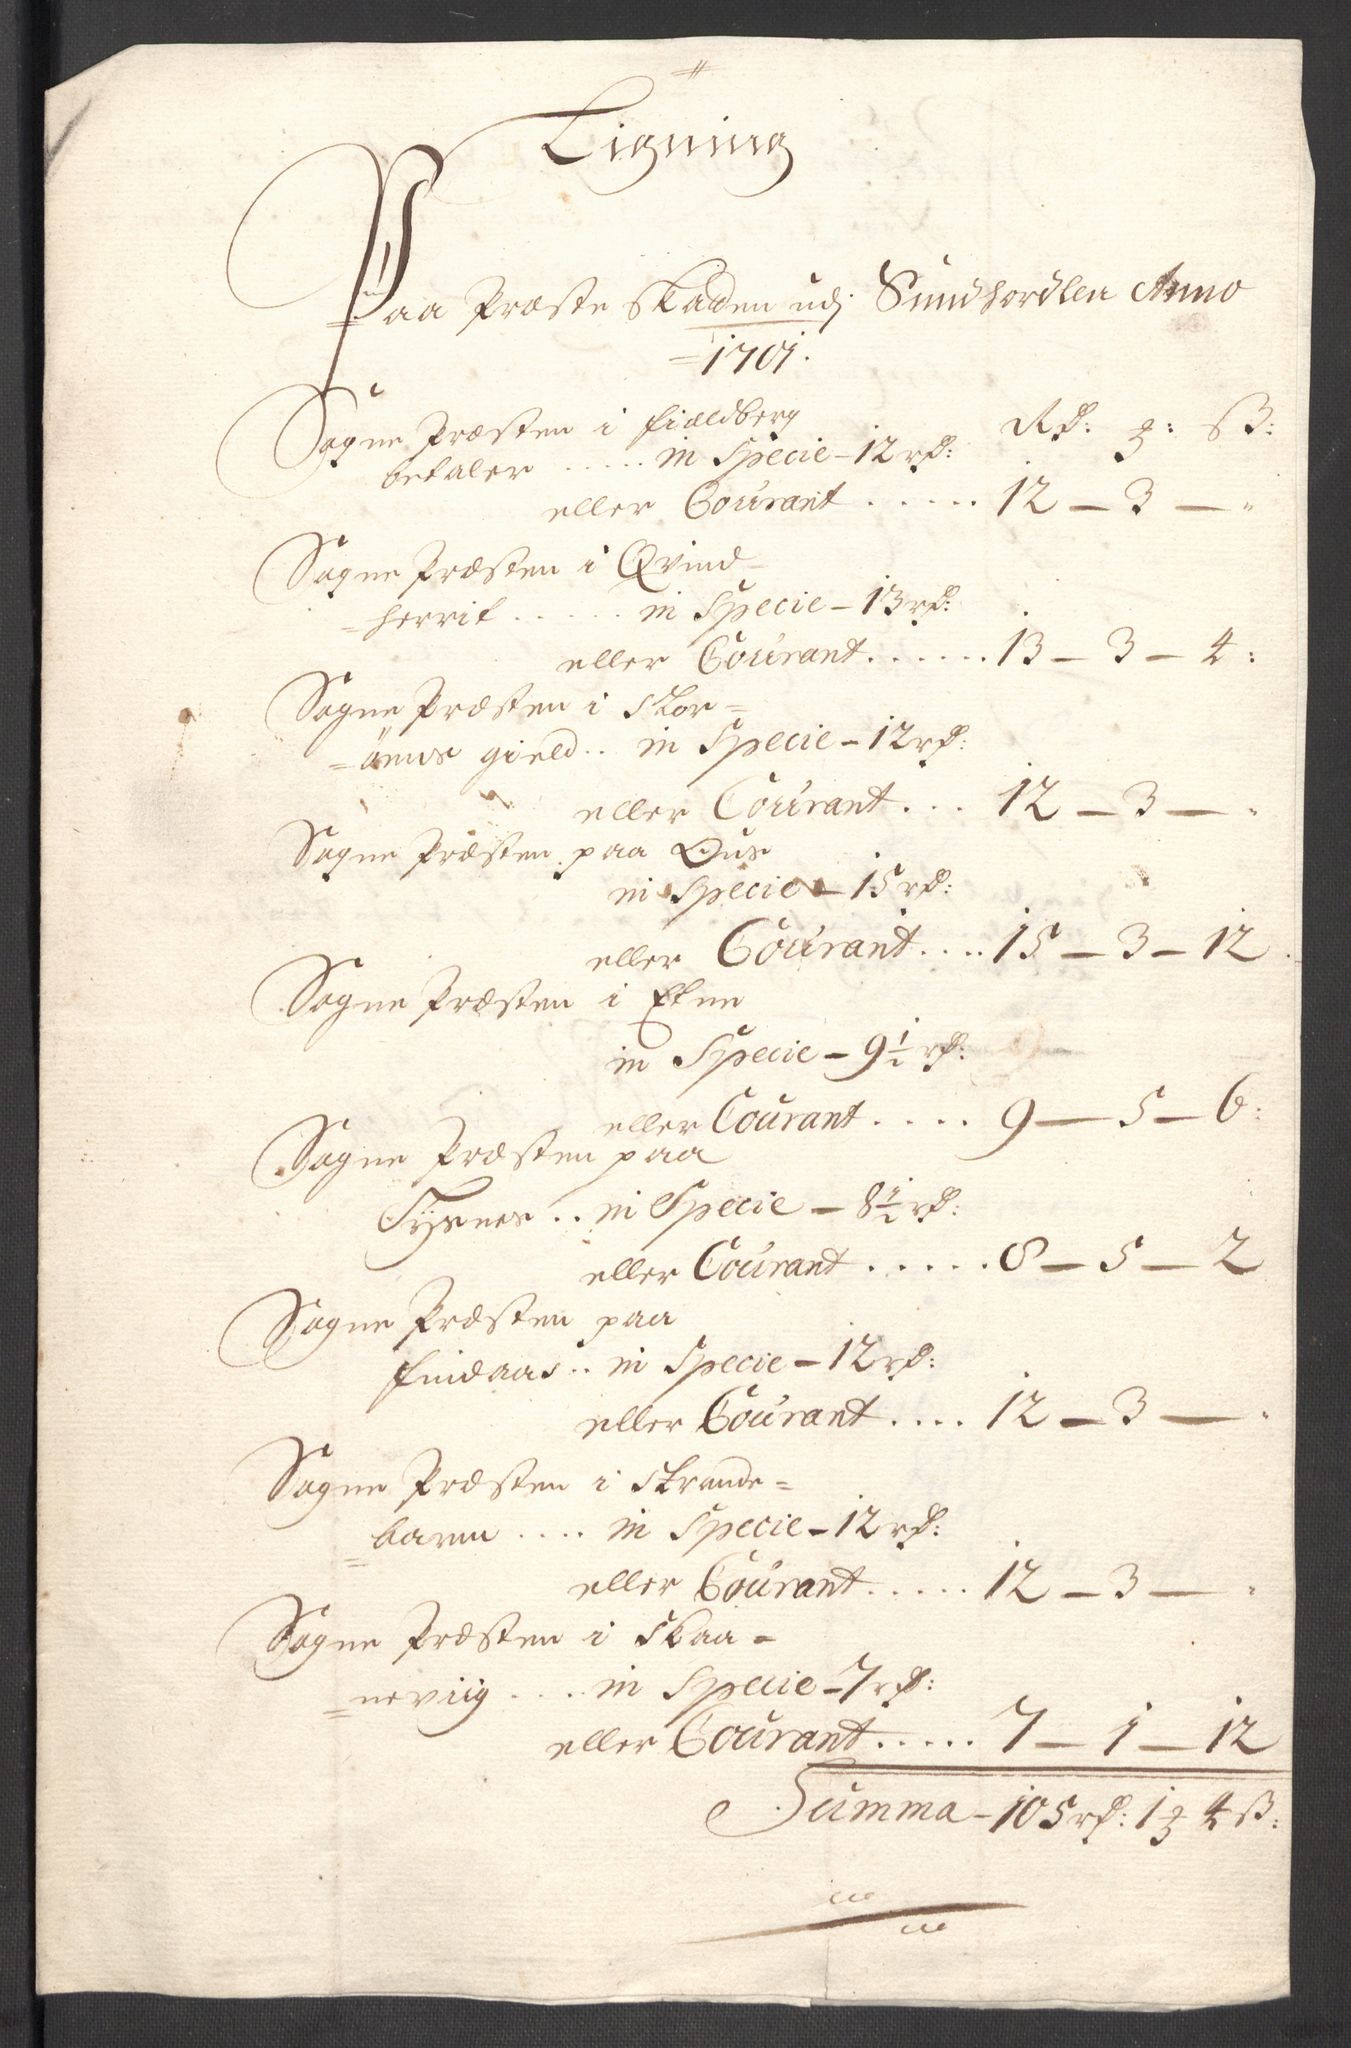 Ligning
Paa Præste Skaden udj Sundhordlen Anno
1701.
Sogne Præsten i Fieldberg Rd: ℥: ß:
betaler ..... in Specie - 12 rd:
eller Courant ..... 12 — 3 — "
Sogne Præsten i Qvind-
=herrit ..... in Specie - 13 rd:
eller Courant ...... 13 — 3 — 4:
Sogne Præsten i Stor=
=öens gield .. in Specie - 12 rd:
eller Courant ... 12 — 3 — "
Sogne Præsten paa Ous
in Specie - 15 rd:
eller Courant .... 15 — 3 — 12
Sogne Præsten i Etne
in Specie - 9½ rd:
eller Courant .... 9 — 5 — 6:
Sogne Præsten paa
Tysnes .. in Specie - 8½ rd:
eller Courant ..... 8 — 5 — 2
Sogne Præsten paa
Findaas .. in Specie - 12 rd:
eller Courant .... 12 — 3 — "
Sogne Præsten i Strande=
=barm .... in Specie - 12 rd:
eller Courant ..... 12 — 3 — "
Sogne Præsten i Skaa=
=neviig .... in Specie - 7 rd:
eller Courant ..... 7 — 1 — 12
Summa - 105 rd: 1 ℥ 4 ß: